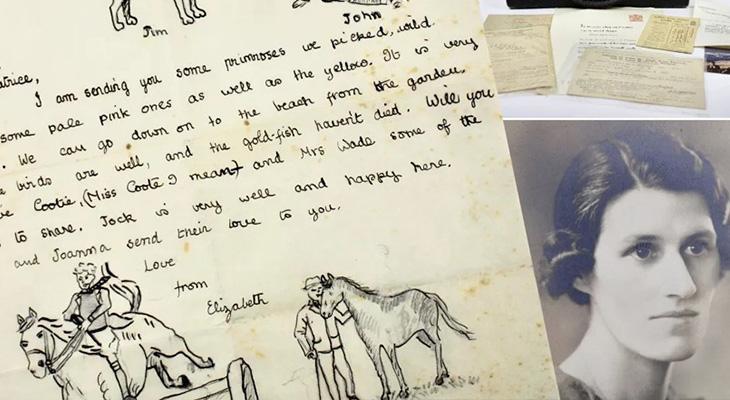 Jim
John
atrice,
I am sending you some primroses we picked, wild.
some pale pink ones as well as the yellow. It is very
. We can go down on to the beach from the garden.
e birds are well, and the gold-fish haven't died. Will you
ve Cootie, (Miss Coote I mean) and Mrs Wade some of the
s to share. Jock is very well and happy here.
and Joanna send their love to you.
Love
from
Elizabeth